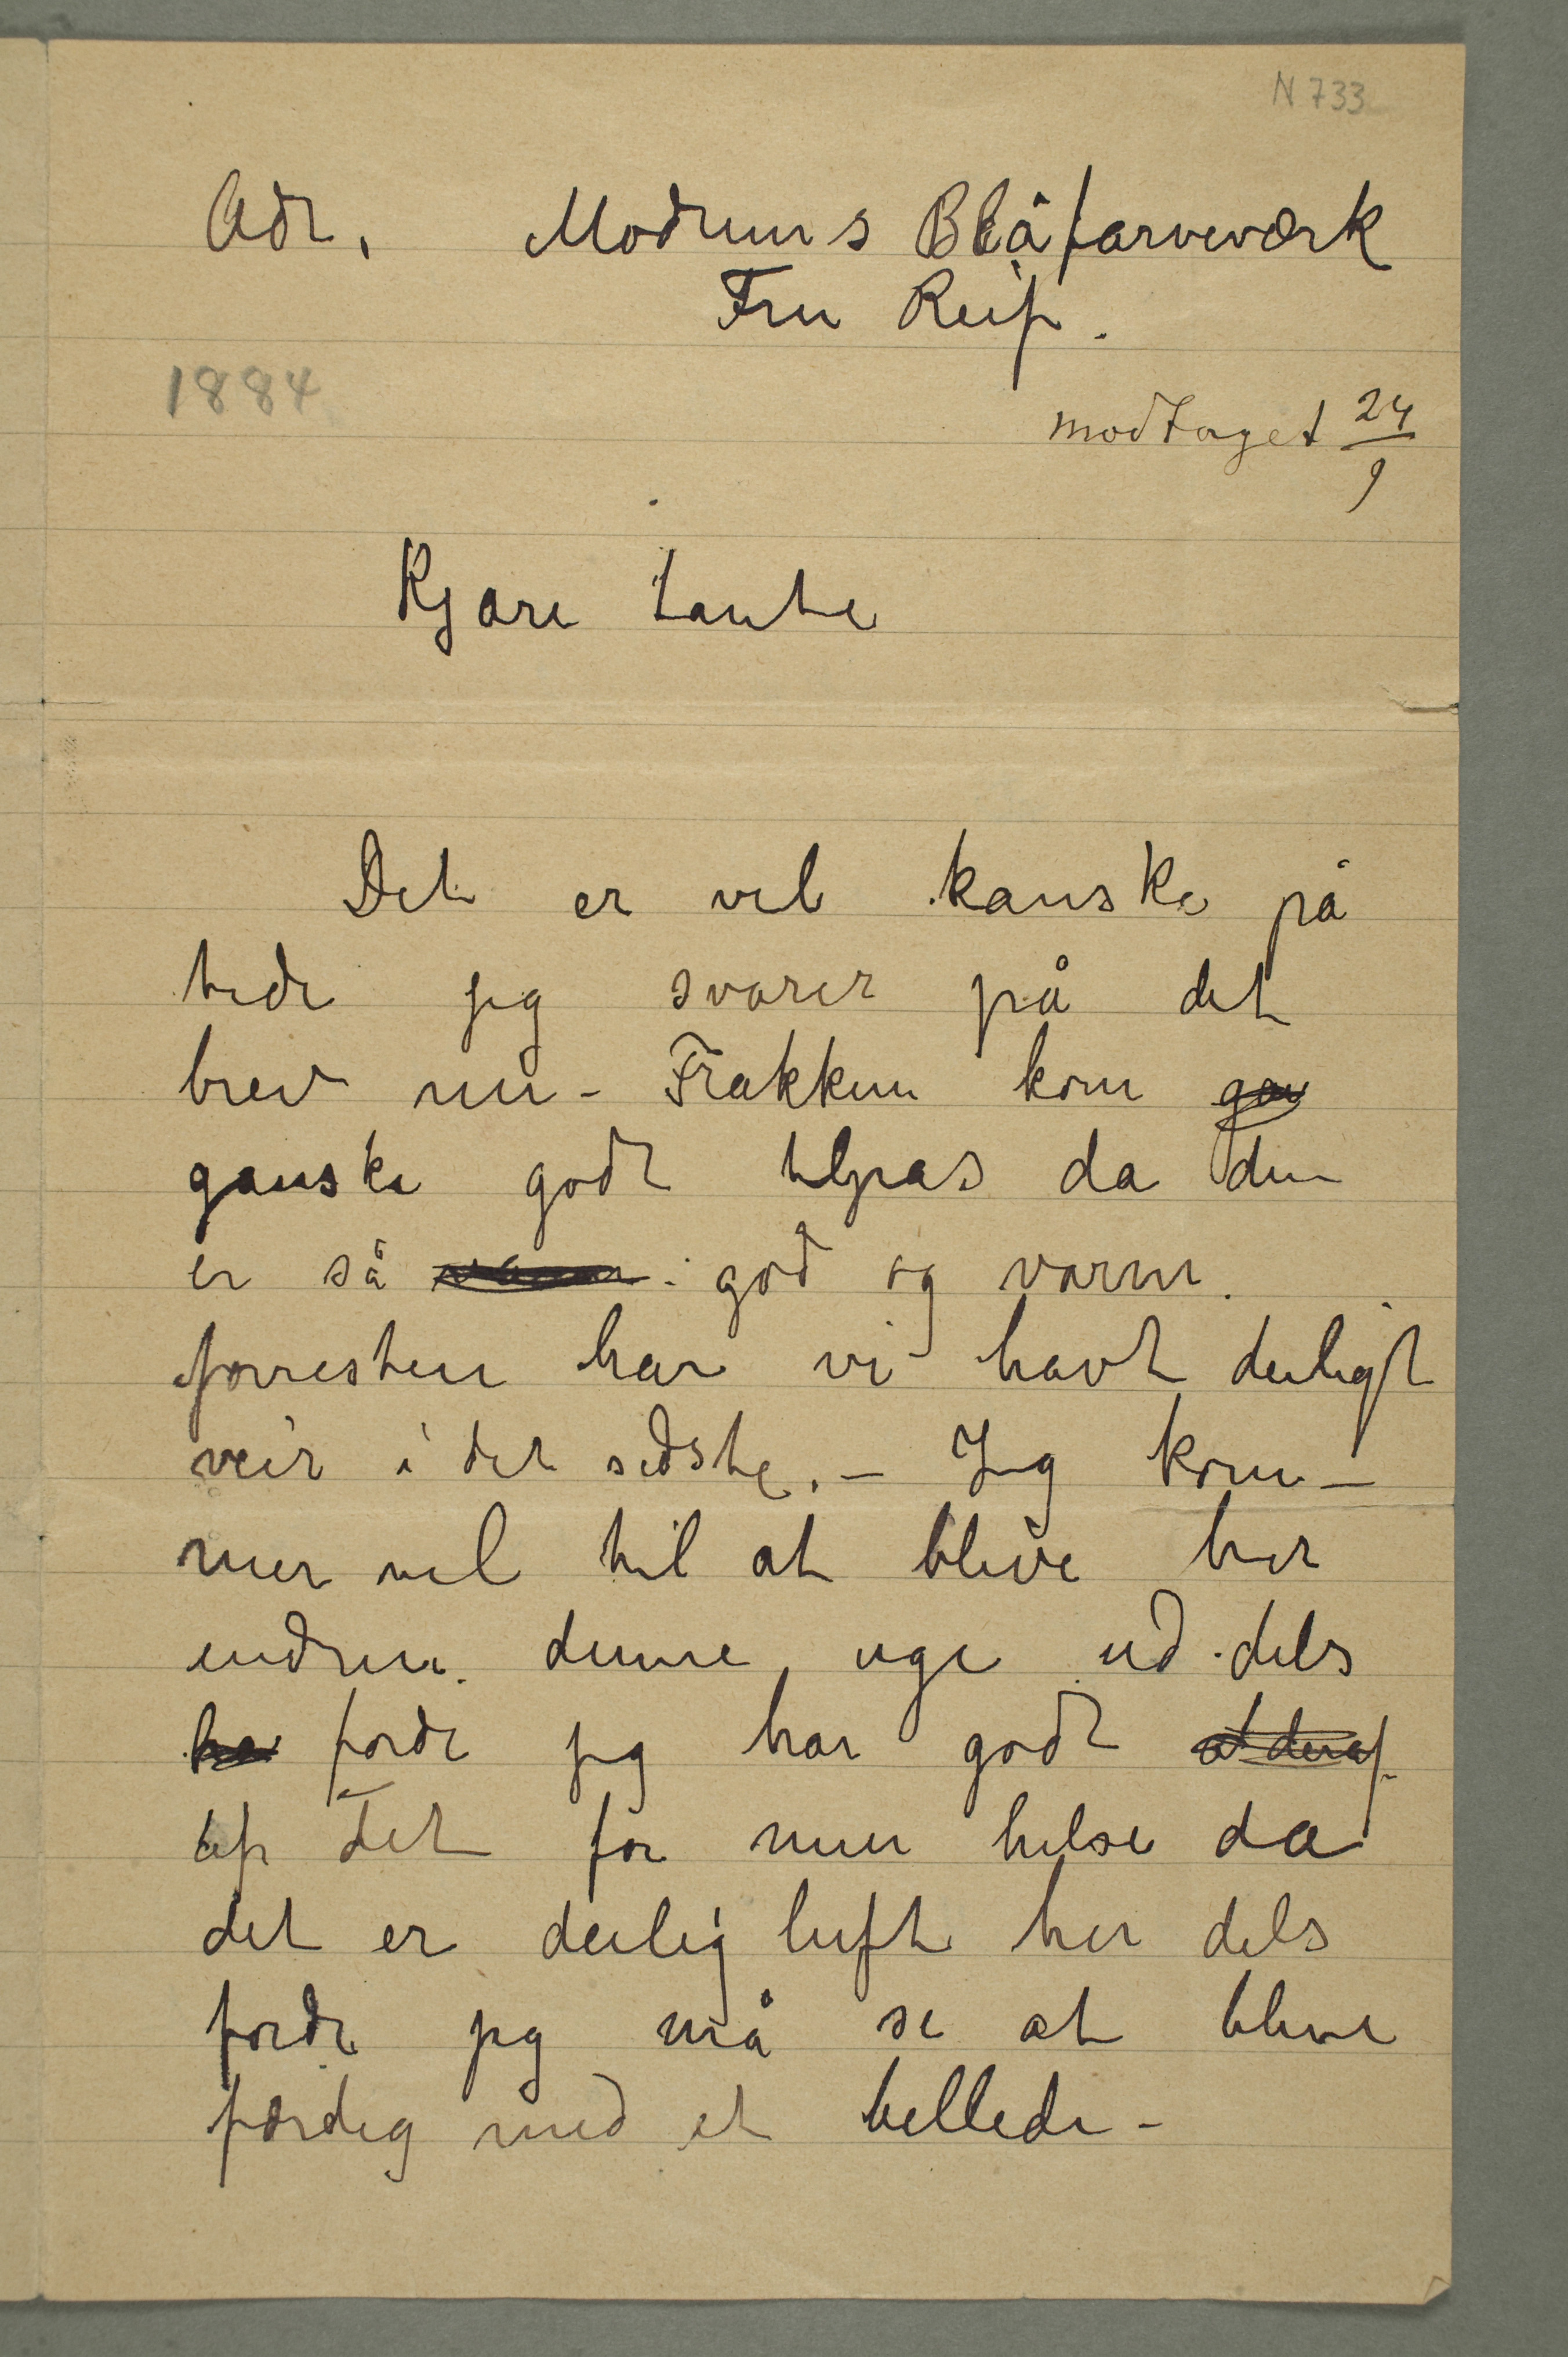 N 733
Adr. Modrums Blåfarveværk
Fru Reif.
1884
modtaget 24/9
Kjære tante
Det er vel kanske på
tide jeg svarer på det
brev nu – Frakken kom gan
ganske godt tilpas da den
er så god og varm.
forresten har vi havt deiligt
veir i det sidste. – Jeg kom–
mer vel til at blive her
endnu denne uge ud dels
ha fordi jeg har godt at deraf
af det for min helse da
det er deilig luft her dels
fordi jeg må se at blive
færdig med et billede –